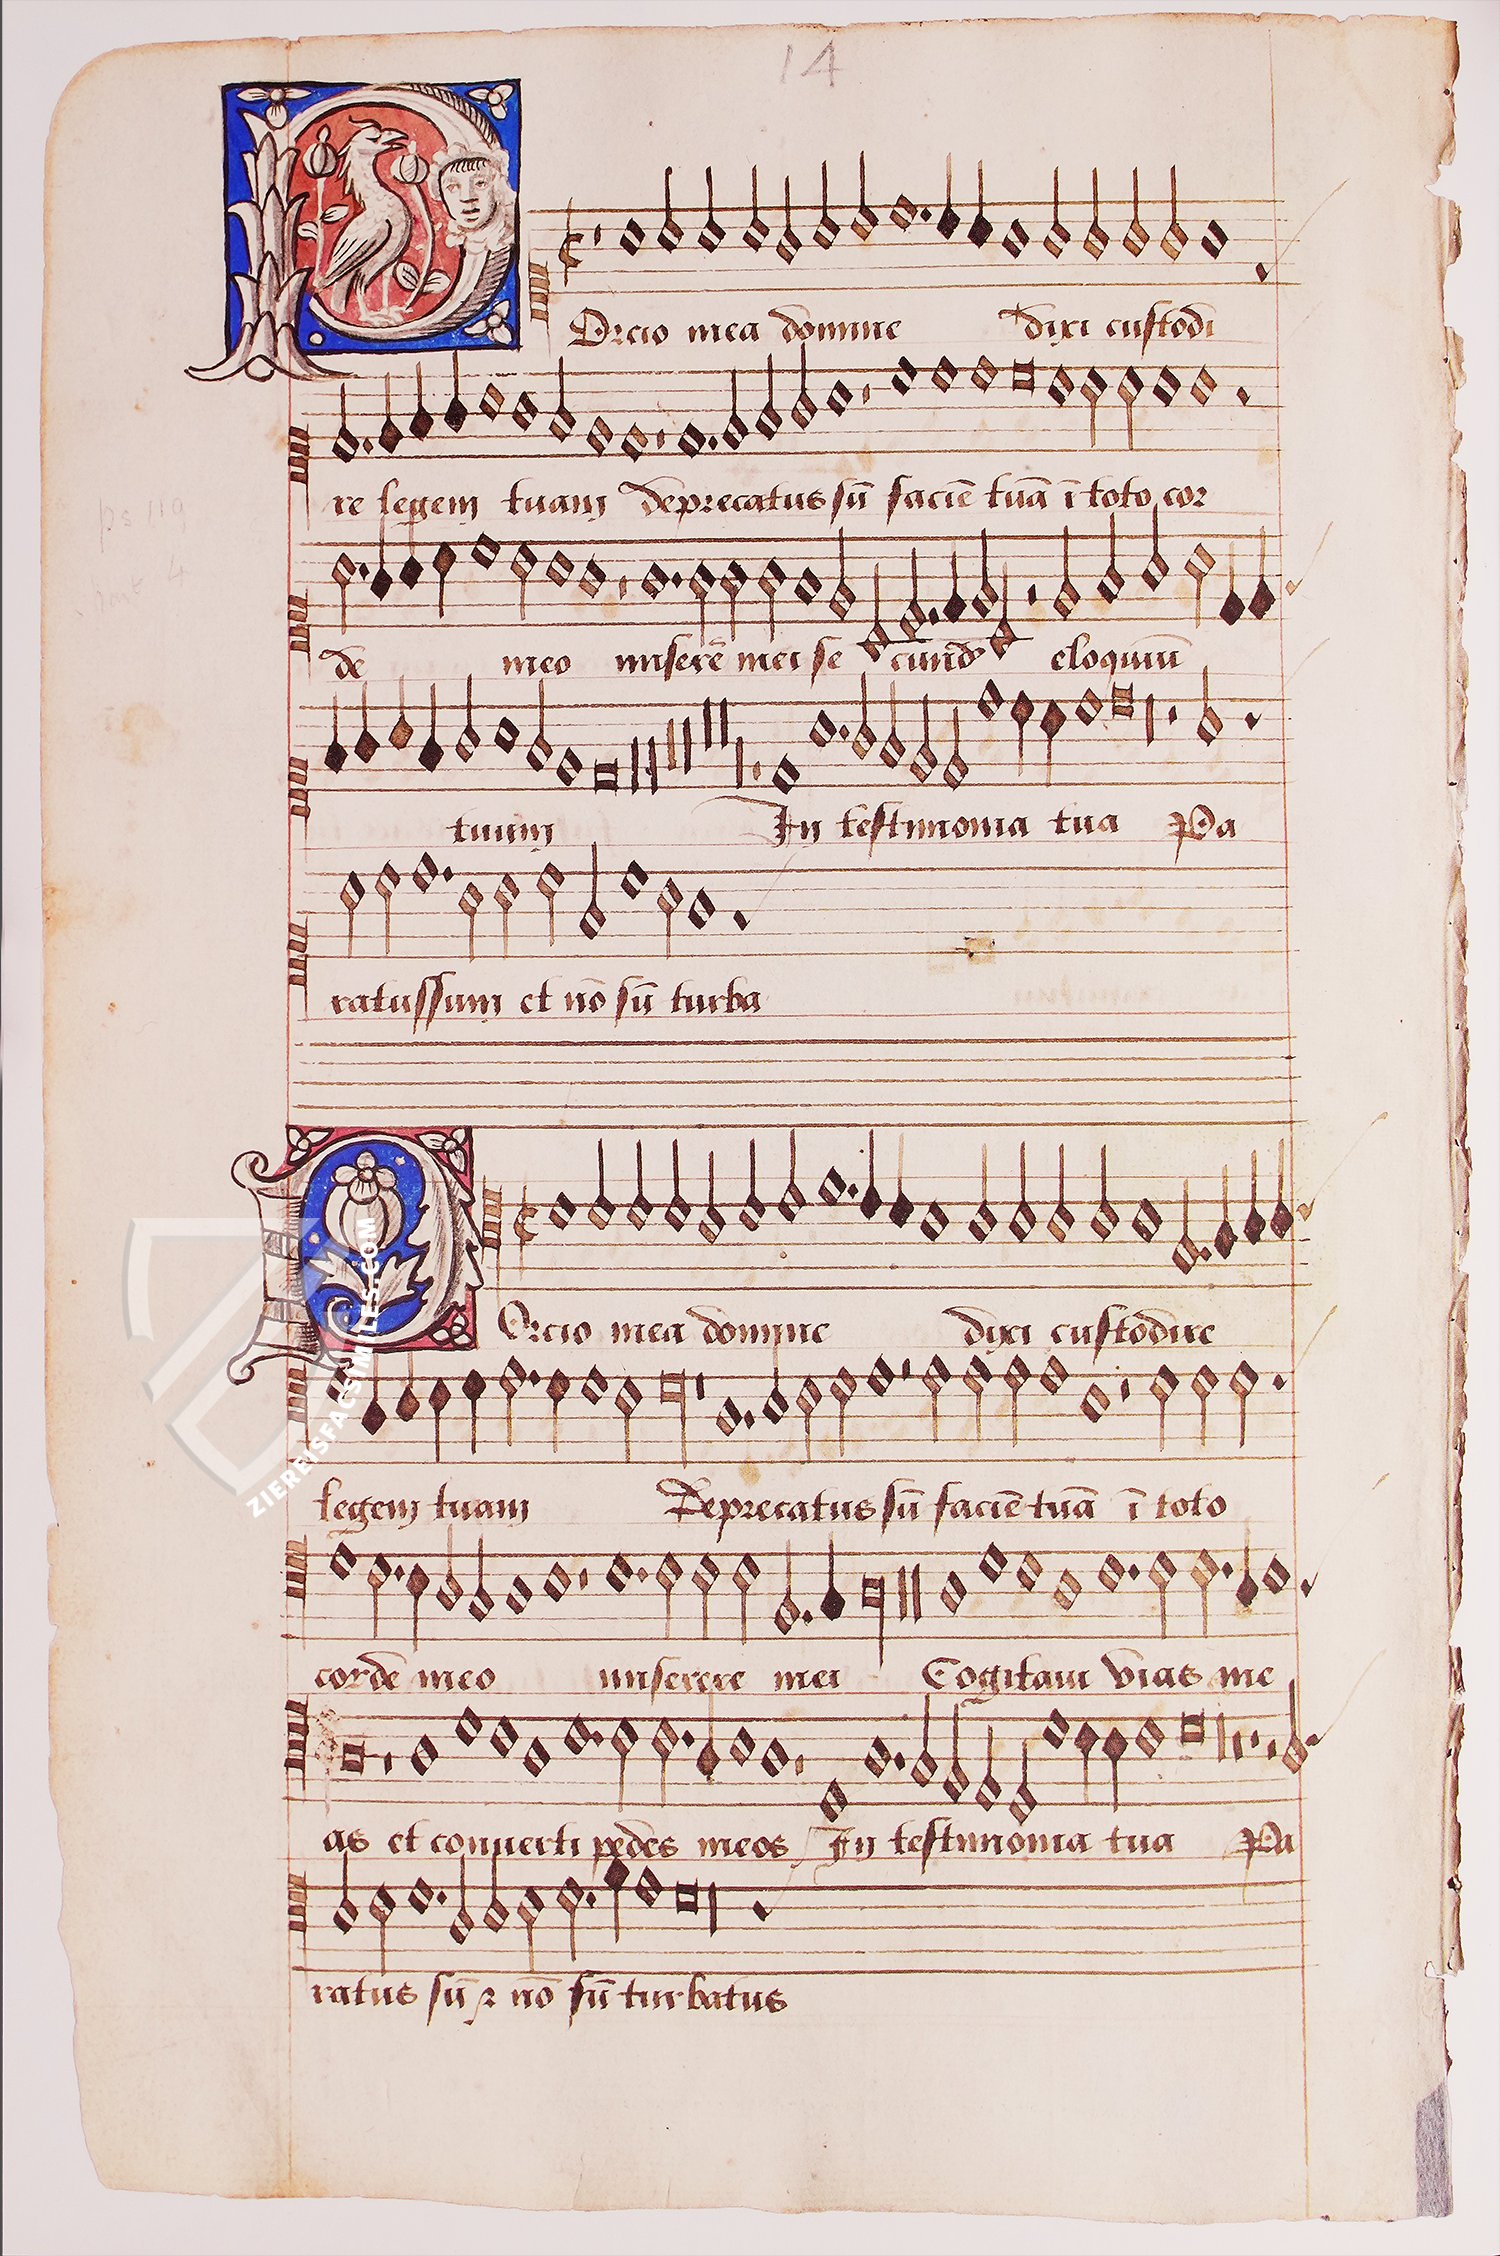 14
Orcio mea domine dixi custodi
re legem tuam deprecatus sū faciē tuā ī toto cor
ps 119
4
de meo miserē mei se cund eloquiū
tuum In testimonia tua Pa
ratussum et nō sū turba
Orcio mea domine dixi custodire
legem tuam Deprecatus sū faciē tuā ī toto
corde meo miserere mei Cogitaui vias me
as et conuerti pedes meos In testimonia tua Pa
ratus sū ⁊ nō sū turbatus
ZIEREISFACSIMILES.COM